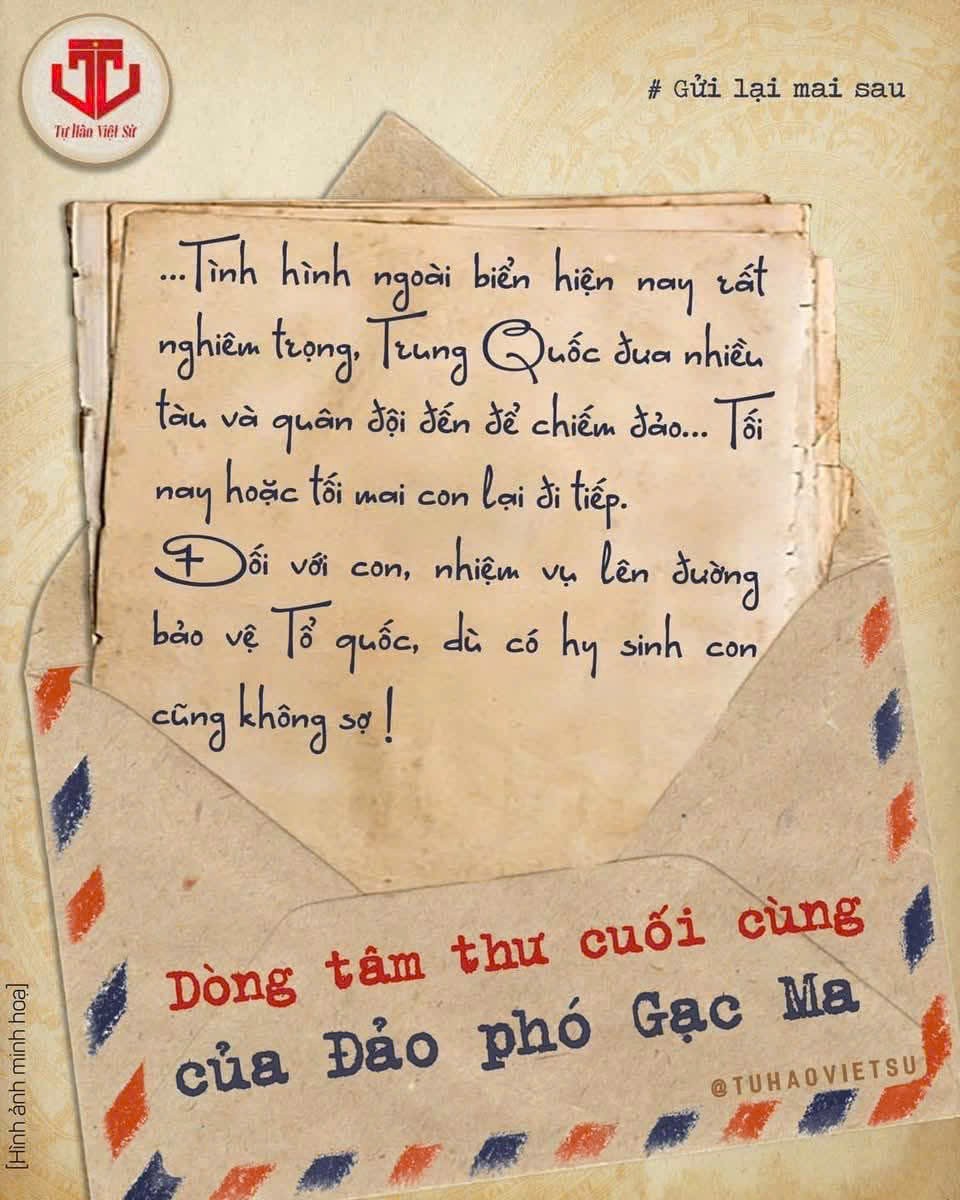 Tự Hào Việt Sử
# Gửi lại mai sau
...Tình hình ngoài biển hiện nay rất
nghiêm trọng, Trung Quốc đưa nhiều
tàu và quân đội đến để chiếm đảo... Tối
nay hoặc tối mai con lại đi tiếp.
Đối với con, nhiệm vụ lên đường
bảo vệ Tổ quốc, dù có hy sinh con
cũng không sợ!
Dòng tâm thư cuối cùng
của Đảo phó Gạc Ma
@TUHAOVIETSU
[Hình ảnh minh hoạ]